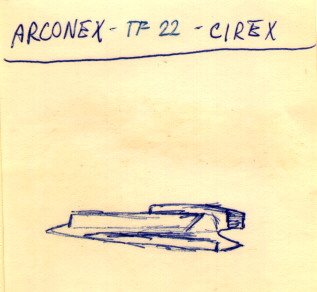 ARCONEX - TF 22 - CIREX